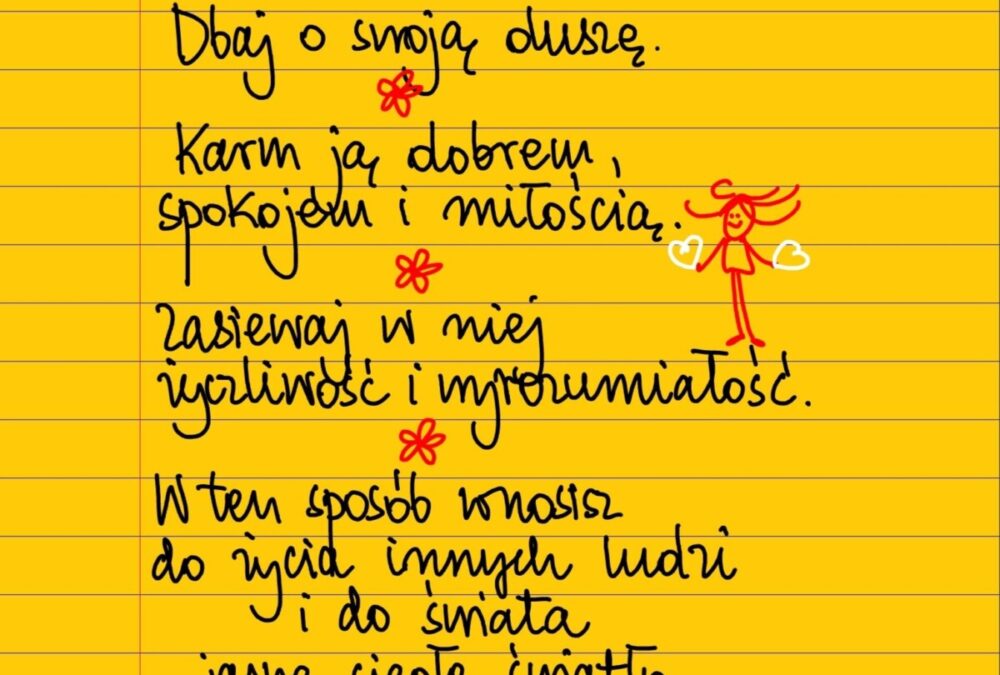 Dbaj o swoją duszę.
Karm ją dobrem,
spokojem i miłością.
Zasiewaj w niej
życzliwość i wyrozumiałość.
W ten sposób wnosisz
do życia innych ludzi
i do świata
jasne ciepłe światło